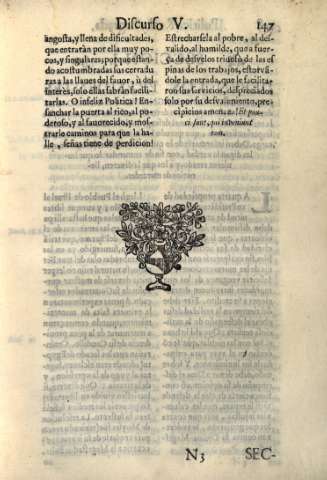 Discurso V. 147
angosta, y llena de dificultades,
que entraràn por ella muy po-
cos, y singulares; porque estan-
do acostumbradas sus cerradu-
ras a las llaues del fauor, ù del
interès, solo ellas sabràn facili-
tarlas. O infeliz Politica! En-
sanchar la puerta al rico, al po-
deroso, y al fauorecido, y mos-
trarle caminos para que la ha-
lle, señas tiene de perdicion!
Estrecharsela al pobre, al des-
valido, al humilde, que a fuer-
ça de desvelos triunfò de las es-
pinas de los trabajos, estorvan-
dole la entrada, que le facilita-
ron sus servicios, despreciados
solo por su desvalimiento, pre-
cipicios amenaza! Et pau-
ci sunt, qui inveniunt
eam.
N3 SEC-